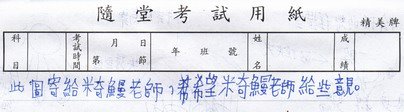 隨堂考試用紙
精美牌
科目 考試時間 月 日 第 節 年 班 號 姓名 成績
此圖寄給米奇鰻老師，希望米奇鰻老師給些意見。